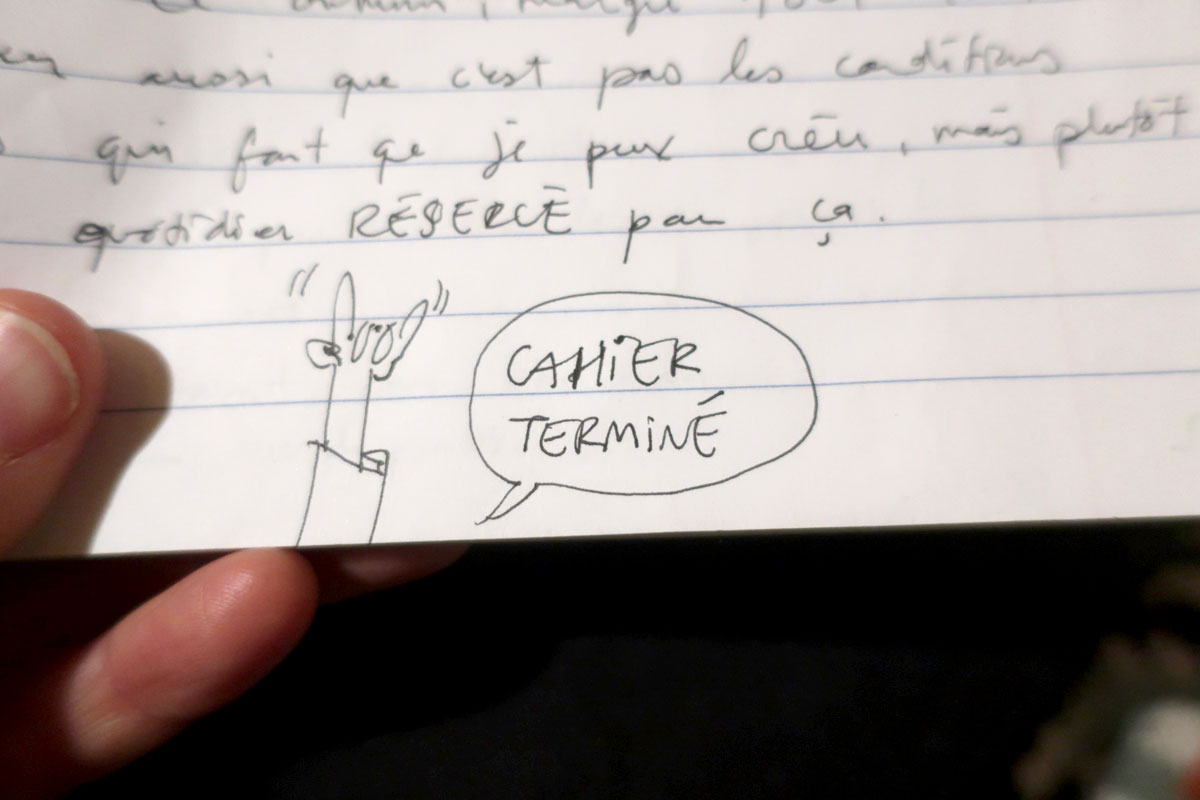 aussi que c'est pas les conditions
qui font que je peux créer, mais plutôt
quotidien RÉSERVÉ pour ça.
CAHIER
TERMINÉ